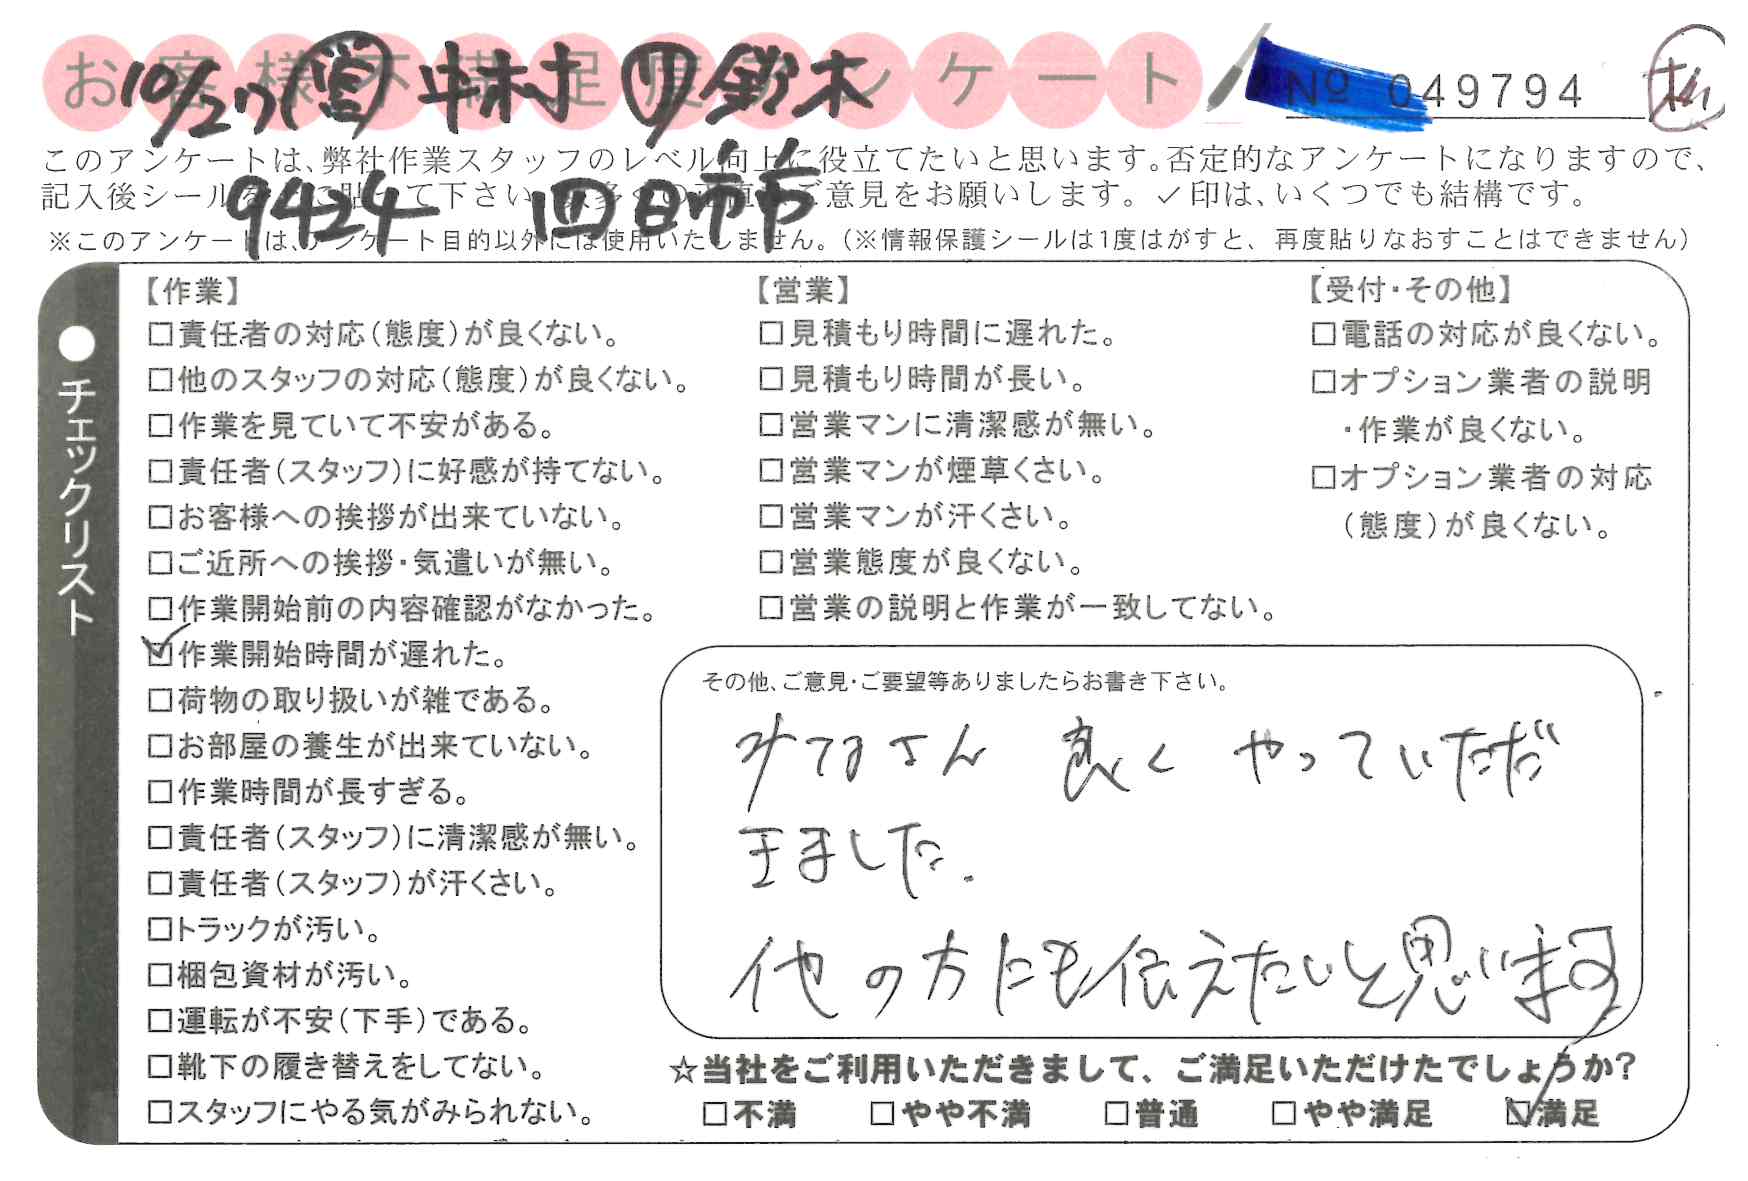 お客様不満足度アンケート
10/27 営 中林村 リ 鈴木
No 049794
このアンケートは、弊社作業スタッフのレベル向上に役立てたいと思います。否定的なアンケートになりますので、
記入後シールを 貼って下さい。 ご意見をお願いします。✓印は、いくつでも結構です。
9424 四日市市
※このアンケートは、アンケート目的以外には使用いたしません。(※情報保護シールは1度はがすと、再度貼りなおすことはできません)
●チェックリスト
【作業】
□責任者の対応(態度)が良くない。
□他のスタッフの対応(態度)が良くない。
□作業を見ていて不安がある。
□責任者(スタッフ)に好感が持てない。
□お客様への挨拶が出来ていない。
□ご近所への挨拶・気遣いが無い。
□作業開始前の内容確認がなかった。
☑作業開始時間が遅れた。
□荷物の取り扱いが雑である。
□お部屋の養生が出来ていない。
□作業時間が長すぎる。
□責任者(スタッフ)に清潔感が無い。
□責任者(スタッフ)が汗くさい。
□トラックが汚い。
□梱包資材が汚い。
□運転が不安(下手)である。
□靴下の履き替えをしてない。
□スタッフにやる気がみられない。
【営業】
□見積もり時間に遅れた。
□見積もり時間が長い。
□営業マンに清潔感が無い。
□営業マンが煙草くさい。
□営業マンが汗くさい。
□営業態度が良くない。
□営業の説明と作業が一致してない。
【受付・その他】
□電話の対応が良くない。
□オプション業者の説明
・作業が良くない。
□オプション業者の対応
(態度)が良くない。
その他、ご意見・ご要望等ありましたらお書き下さい。
みなさん 良く やっていただ
きました.
他の方にも伝えたいと思います
☆当社をご利用いただきまして、ご満足いただけたでしょうか?
□不満 □やや不満 □普通 □やや満足 ☑満足